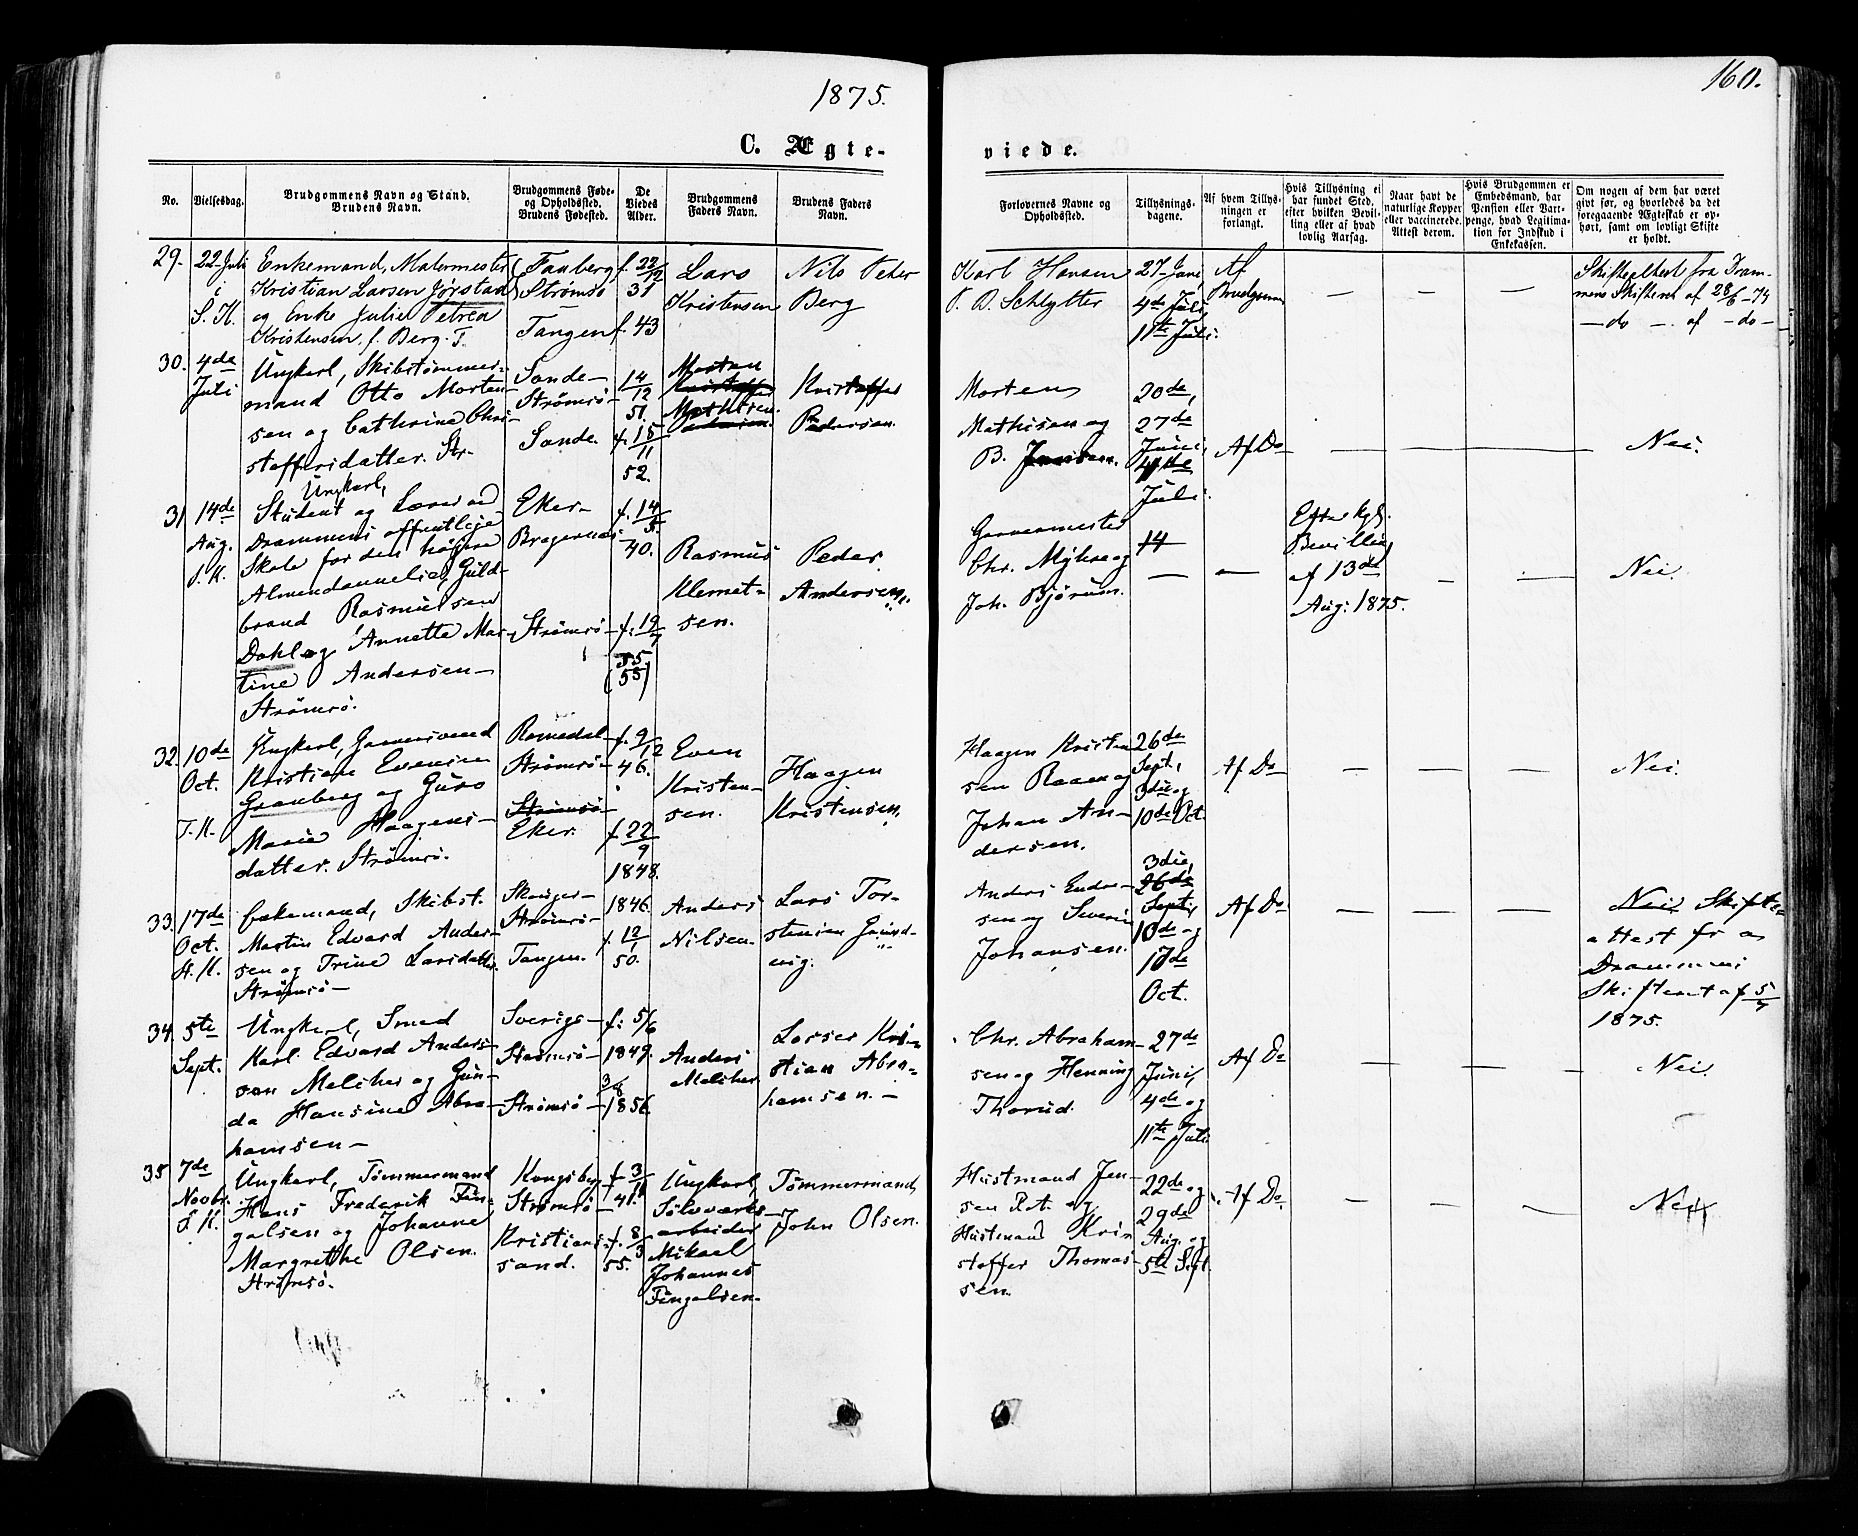 1875.
160.
C. Ægte-
viede.
No.
Vielsesdag.
Brudgommens Navn og Stand.
Brudens Navn.
Brudgommens Føde-
og Opholdssted.
Brudens Fødested.
De
Viedes
Alder.
Brudgommens
Faders Navn.
Brudens Faders
Navn.
Forlovernes Navne og
Opholdssted.
Tillysnings-
dagene.
Af hvem Tillys-
ningen er
forlangt.
Hvis Tillysning ei
har fundet Sted,
efter hvilken Bevil-
ling eller af hvad
lovlig Aarsag.
Naar havt de
naturlige Kopper
eller vaccinerede.
Attest derom.
Hvis Brudgommen er
Embedsmand, har
Pension eller Vart-
penge, hvad Legitima-
tion for Indskud i
Enkekassen.
Om nogen af dem har været
givt før, og hvorledes da det
foregaaende Ægteskab er op-
hørt, samt om lovligt Skifte
er holdt.
29.
22 Juli
i
S. K.
Enkemand, Malermester
Kristian Larsen Jørstad
og Enke Julie Petrea
Kristensen, f. Berg. T.
Faaberg
Strømsø
Tangen
f. 22/12
31
f. 43
Lars
Kristensen
Nils Peter
Berg
Karl Hansen
P. B. Schlytter
27 Juni
4de Juli,
11te Juli.
Af
Brudgommen
— — —
Skifteattest fra Dram-
mens Skifteret af 28/6 - 74
— do — . af — do —
30.
4de
Juli
Ungkarl, Skibstømmer-
mand Otto Morten-
sen og Cathrine Chri-
stoffersdatter. Str.
Sande—
Strømsø-
Sande.
14/12
51.
f. 15/11
52.
Morten
Mathisen.
Kristoffer
Pedersen.
Morten
Mathisen og
B. Jensen.
20de,
27de
Juni,
4de
Juli.
Af Do
— — —
Nei.
31
14de
Aug.
S. K.
Ungkarl,
Student og Lærer ved
Drammens offentlige
Skole for den høiere
Almendannelse, Guld-
brand Rasmussen
Dahl og Annette Mar-
tine Andersen—
Strømsø.
Eker—
Bragernæs.
Strømsø—
f. 14/5
40.
f. 19/7
55
(55)
Rasmus
Klemet-
sen.
Peder
Andersen.
Garvermester
Chr. Myhre og
Joh. Bjørum.
14
— —
Efter kgl.
Bevilling
af 13de
Aug: 1875.
— —
Nei.
32.
10de
Oct.
T. K.
Ungkarl, Garversvend
Kristian Evensen
Granberg og Guro
Marie Haagens-
datter. Strømsø.
Romedal—
Strømsø—
Strømsø—
Eker.
f. 9/12
46.
f. 22/9
1848.
Even
Kristen-
sen.
Haagen
Kristensen.
Haagen Kristen-
sen Raaen og
Johan An-
dersen.
26de
Sept.,
3die og
10de Oct.
Af Do
— — —
Nei.
33.
17de
Oct.
St. K.
Enkemand, Skibst.
Martin Edvard Ander-
sen og Trine Larsdatter.
Strømsø—
Skouger—
Strømsø—
Tangen.
1846.
f. 12/1
50.
Anders
Nilsen.
Lars Tor-
stensen Grund-
vig.
Anders Endre-
sen og Severin
Johansen.
3die,
26de
Sept.,
10de og
17de
Oct.
Af Do
— — —
Nei. Skifte-
attest fra
Drammens
Skifteret af 5/7
1875.
34.
5te
Sept.
Ungkarl, Smed
Karl Edvard Anders-
son Melcher og Gun-
da Hansine Abra-
hamsen—
Sverige—
Strømsø—
Strømsø—
f. 5/6
1849.
3/8
1856.
Anders
Melcher
Losser Kri-
stian Abra-
hamsen.—
Chr. Abraham-
sen og Henning
Thorud.
27de
Juni,
4de og
11te Juli.
Af Do
— — —
Nei.
35.
7de
Novbr.
S. K.
Ungkarl, Tømmermand
Hans Frederik Fin-
galsen og Johanne
Margrethe Olsen.
Strømsø.
Kongsberg
Strømsø—
Kristian-
sand.
f. 3/11
41.
f. 8/3
55.
Ungkarl,
Sølvværks-
arbeider
Mikael
Johannes
Fingalsen.
Tømmermand,
John Olsen.
Husmand Jen-
sen Pet. og
Husmand Kri-
stoffer Thomas-
sen.
22de og
29de
Aug. og
5te Sept.
Af Do
— — —
Nei